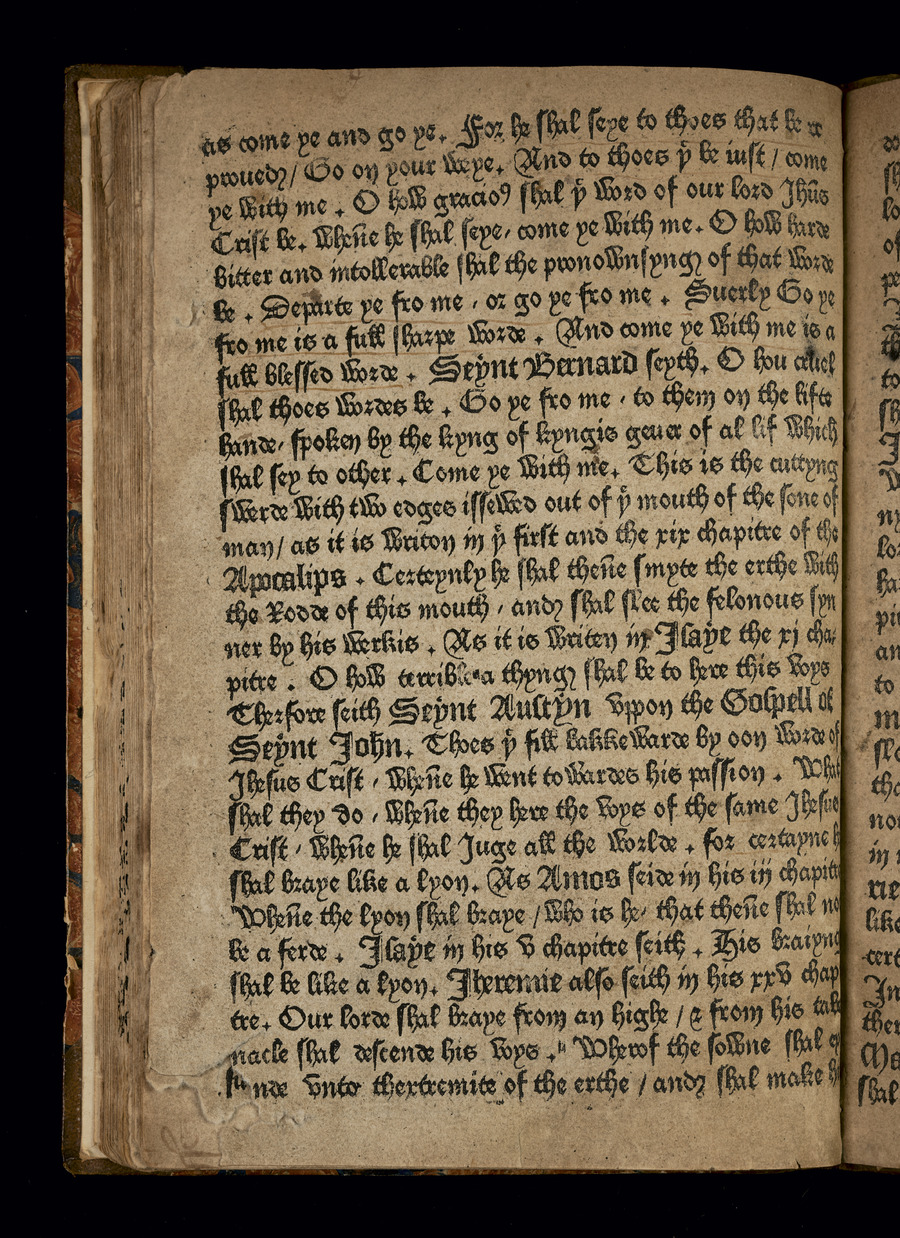 as come ye and go ye. For he shal seye to thoes that be re
prouedꝫ / Go on your weye. And to thoes yͤ be iust / come
ye with me . O how gracioꝰ shal yͤ word of our lord Jhūs
Crist be. whēne he shal seye, come ye with me. O how harde
bitter and intollerable shal the pronownsyngꝫ of that worde
be . Departe ye fro me , or go ye fro me . Suerly Go ye
fro me is a full sharpe worde . And come ye with me is a
full blessed worde . Seynt Bernard seyth. O hou cruel
shal thoes wordes be . Go ye fro me , to them on the lifte
hande, spoken by the kyng of kyngis geuer of al lif which
shal sey to other . Come ye with me. This is the cuttyng
swerde with two edges issewed out of yͤ mouth of the sone of
man / as it is writon in yͤ first and the xix chapitre of the
Apocalips . Certeynly he shal thēne smyte the erthe with
the Rodde of this mouth , andꝫ shal slee the felonous syn
ner by his werkis . As it is writen in Jsaye the xj cha,
pitre . O how terrible a thyngꝫ shal be to here this voys
Therfore seith Seynt Austyn vppon the Gospell of
Seynt John. Thoes yͤ fill bakkewarde by oon worde of
Jhesus Crist , whēne he went towardes his passion . What
shal they do , whēne they here the voys of the same Jhesus
Crist , whēne he shal Juge all the worlde . for certayne h
shal braye like a lyon. As Amos seide in his iij chapitr
Whēne the lyon shal braye / who is he, that thēne shal no
be a ferde . Jsaye in his v chapitre seith . His braiyng
shal be like a lyon. Jheremie also seith in his xxv chap
tre. Our lorde shal braye from an highe / & from his tab
nacle shal descende his voys . Wherof the sowne shal
nde vnto thextremite of the erthe / andꝫ shal make h